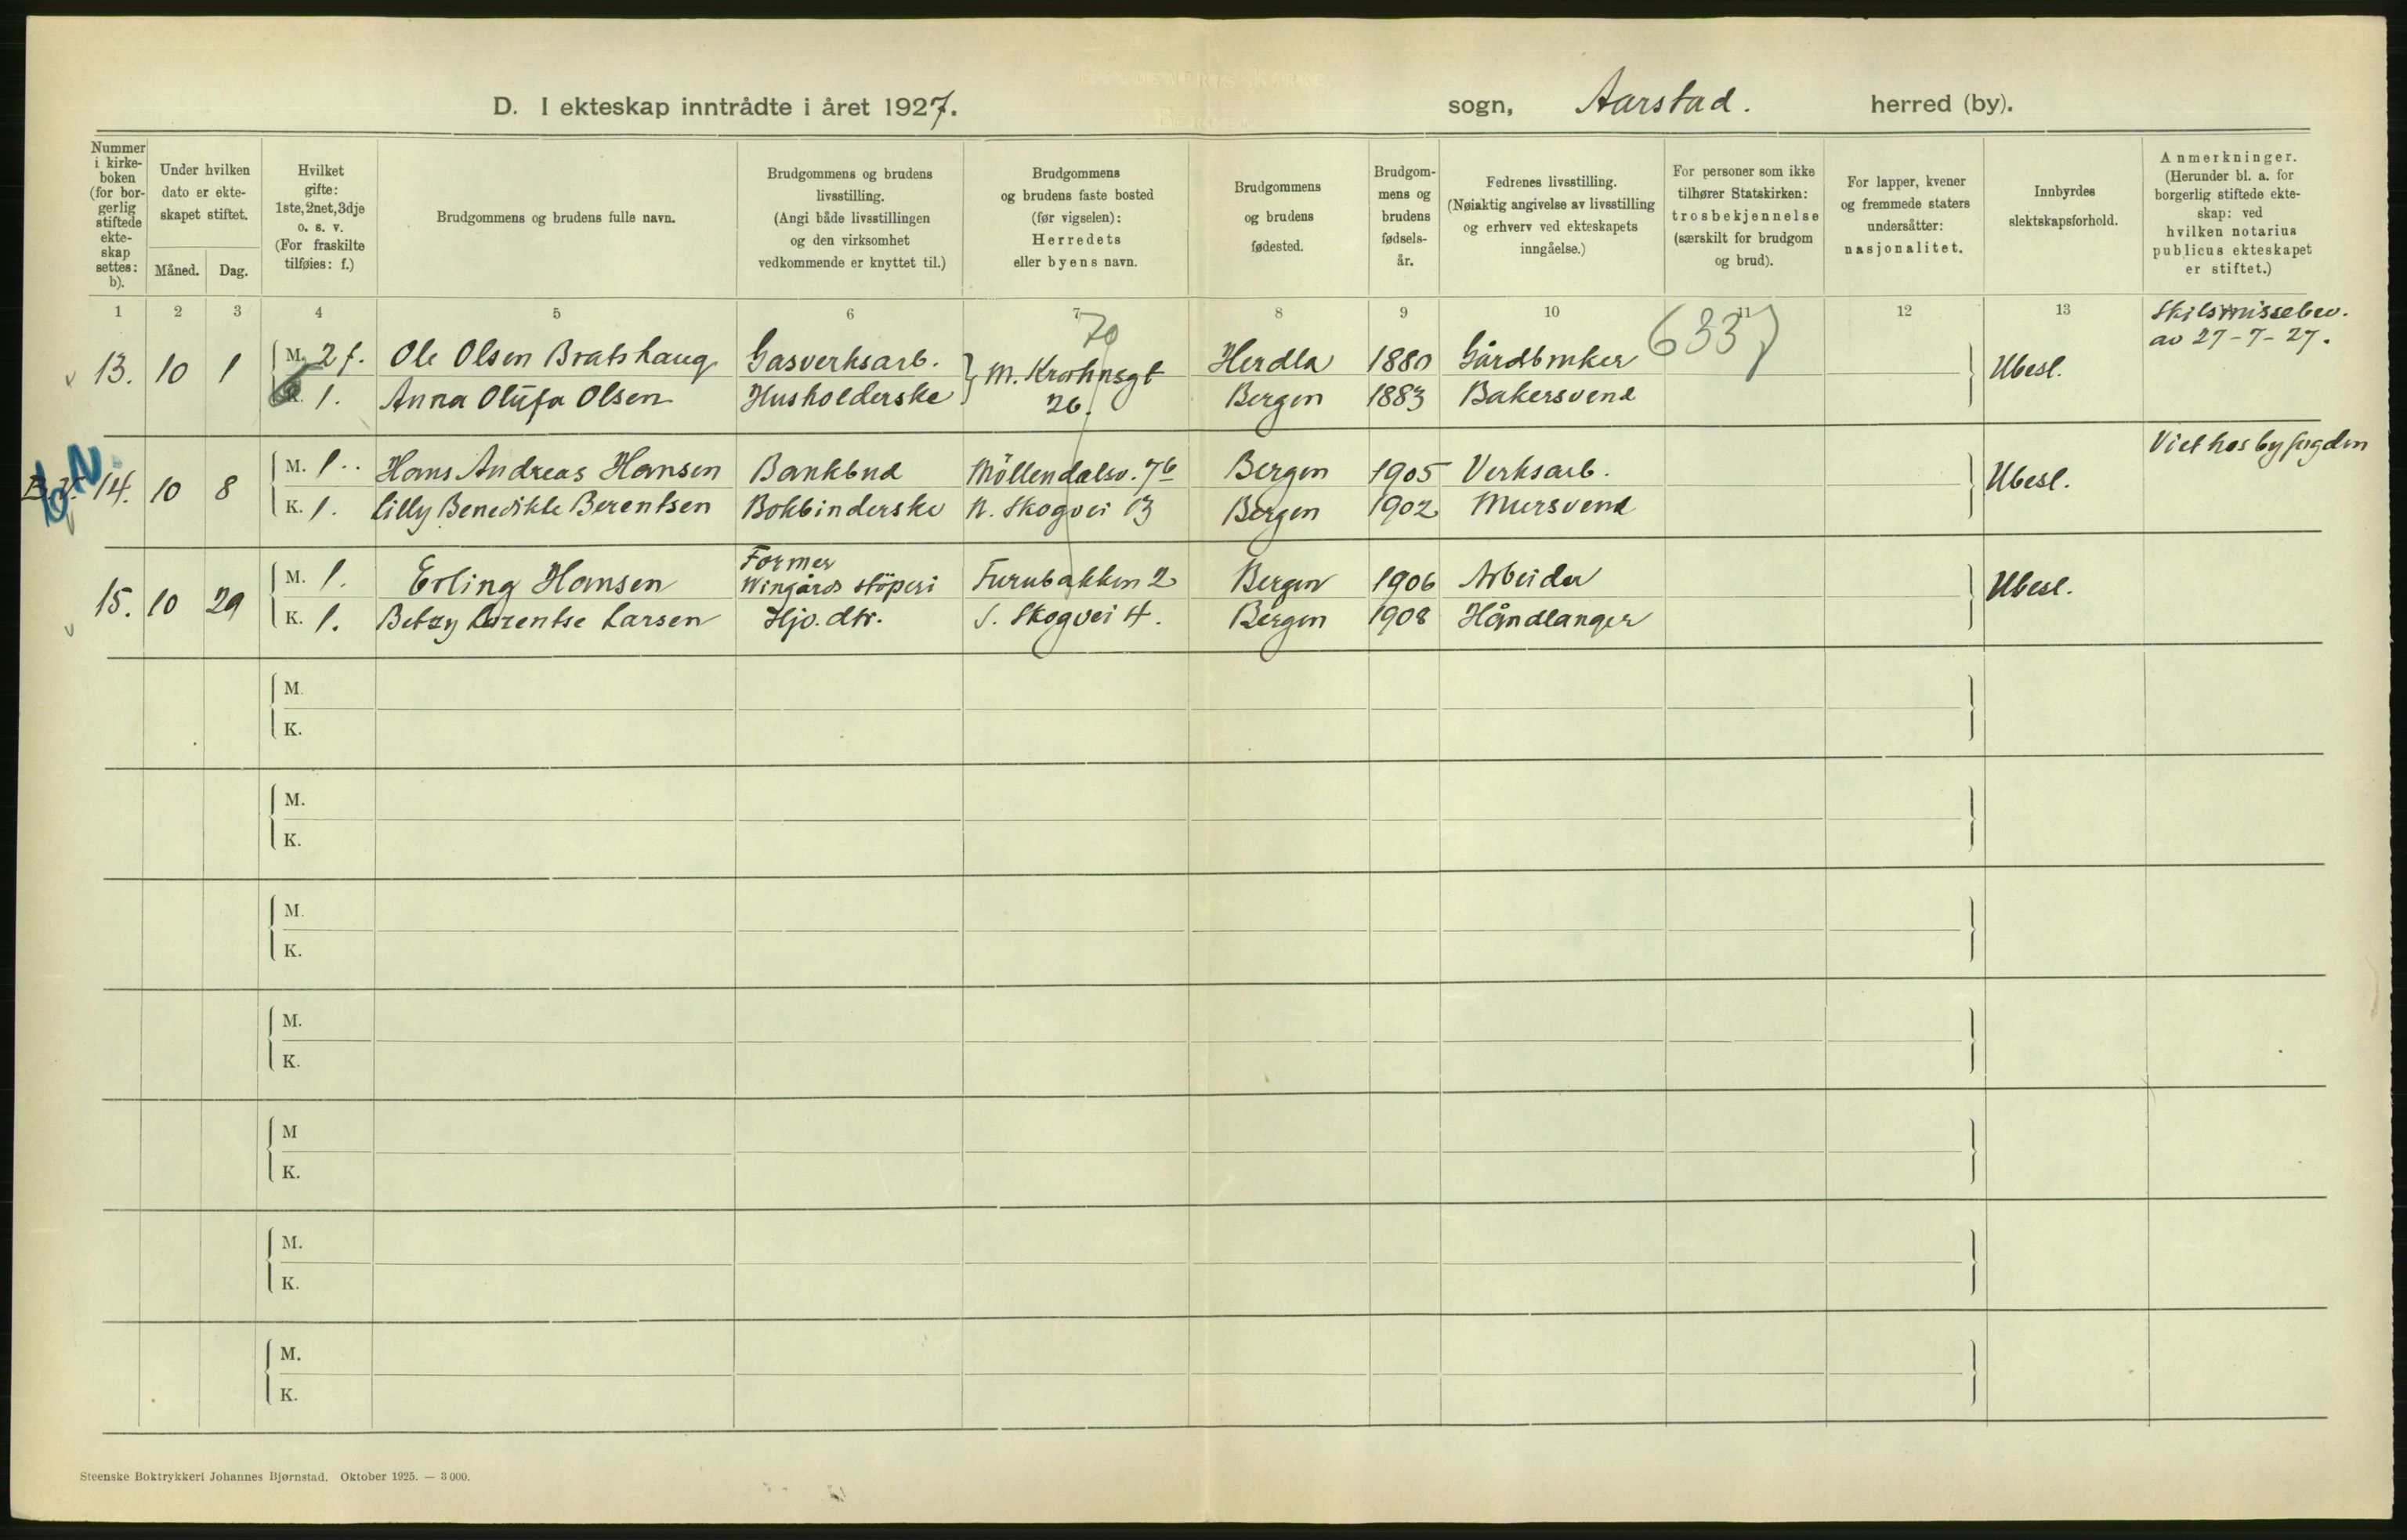 D. I ekteskap inntrådte i året 1927.
sogn, Aarstad. herred (by).
Nummer i kirke-boken (for bor-gerlig stiftede ekte-skap settes: b).
Under hvilken dato er ekte-skapet stiftet.
Måned. Dag.
Hvilket gifte: 1ste, 2net, 3dje o. s. v. (For fraskilte tilføies: f.)
Brudgommens og brudens fulle navn.
Brudgommens og brudens livsstilling. (Angi både livsstillingen og den virksomhet vedkommende er knyttet til.)
Brudgommens og brudens faste bosted (før vigselen): Herredets eller byens navn.
Brudgommens og brudens fødested.
Brudgom-mens og brudens fødsels-år.
Fedrenes livsstilling. (Nøiaktig angivelse av livsstilling og erhverv ved ekteskapets inngåelse.)
For personer som ikke tilhører Statskirken: trosbekjennelse (særskilt for brudgom og brud).
For lapper, kvener og fremmede staters undersåtter: nasjonalitet.
Innbyrdes slektskapsforhold.
Anmerkninger. (Herunder bl. a. for borgerlig stiftede ekte-skap: ved hvilken notarius publicus ekteskapet er stiftet.)
1 2 3 4 5 6 7 8 9 10 11 12 13
70
6337
Skilsmissebev.
av 27-7-27.
13. 10 1 M. 2 f. Ole Olsen Bratshaug Gasverksarb. M. Krohnsgt Herdla 1880 Gårdbruker Ubesl.
K. 1. Anna Olufa Olsen Husholderske 26. Bergen 1883 Bakersvend
Viet hos byfogden
14. 10 8 M. 1. Hans Andreas Hansen Bankbud Möllendalsv. 7b Bergen 1905 Verksarb. Ubesl.
K. 1. Lilly Benedikte Berentsen Bokbinderske N. Skogvei 13 Bergen 1902 Mursvend
Former
15. 10 29 M. 1. Erling Hansen Wingårds stöperi Furubakken 2 Bergen 1906 Arbeider Ubesl.
K. 1. Betzy Lorentse Larsen Hjv. dtr. S. Skogvei 4. Bergen 1908 Håndlanger
M.
K.
M.
K.
M.
K.
M.
K.
M
K.
M.
K.
M.
K.
Steenske Boktrykkeri Johannes Bjørnstad. Oktober 1925. — 3000.